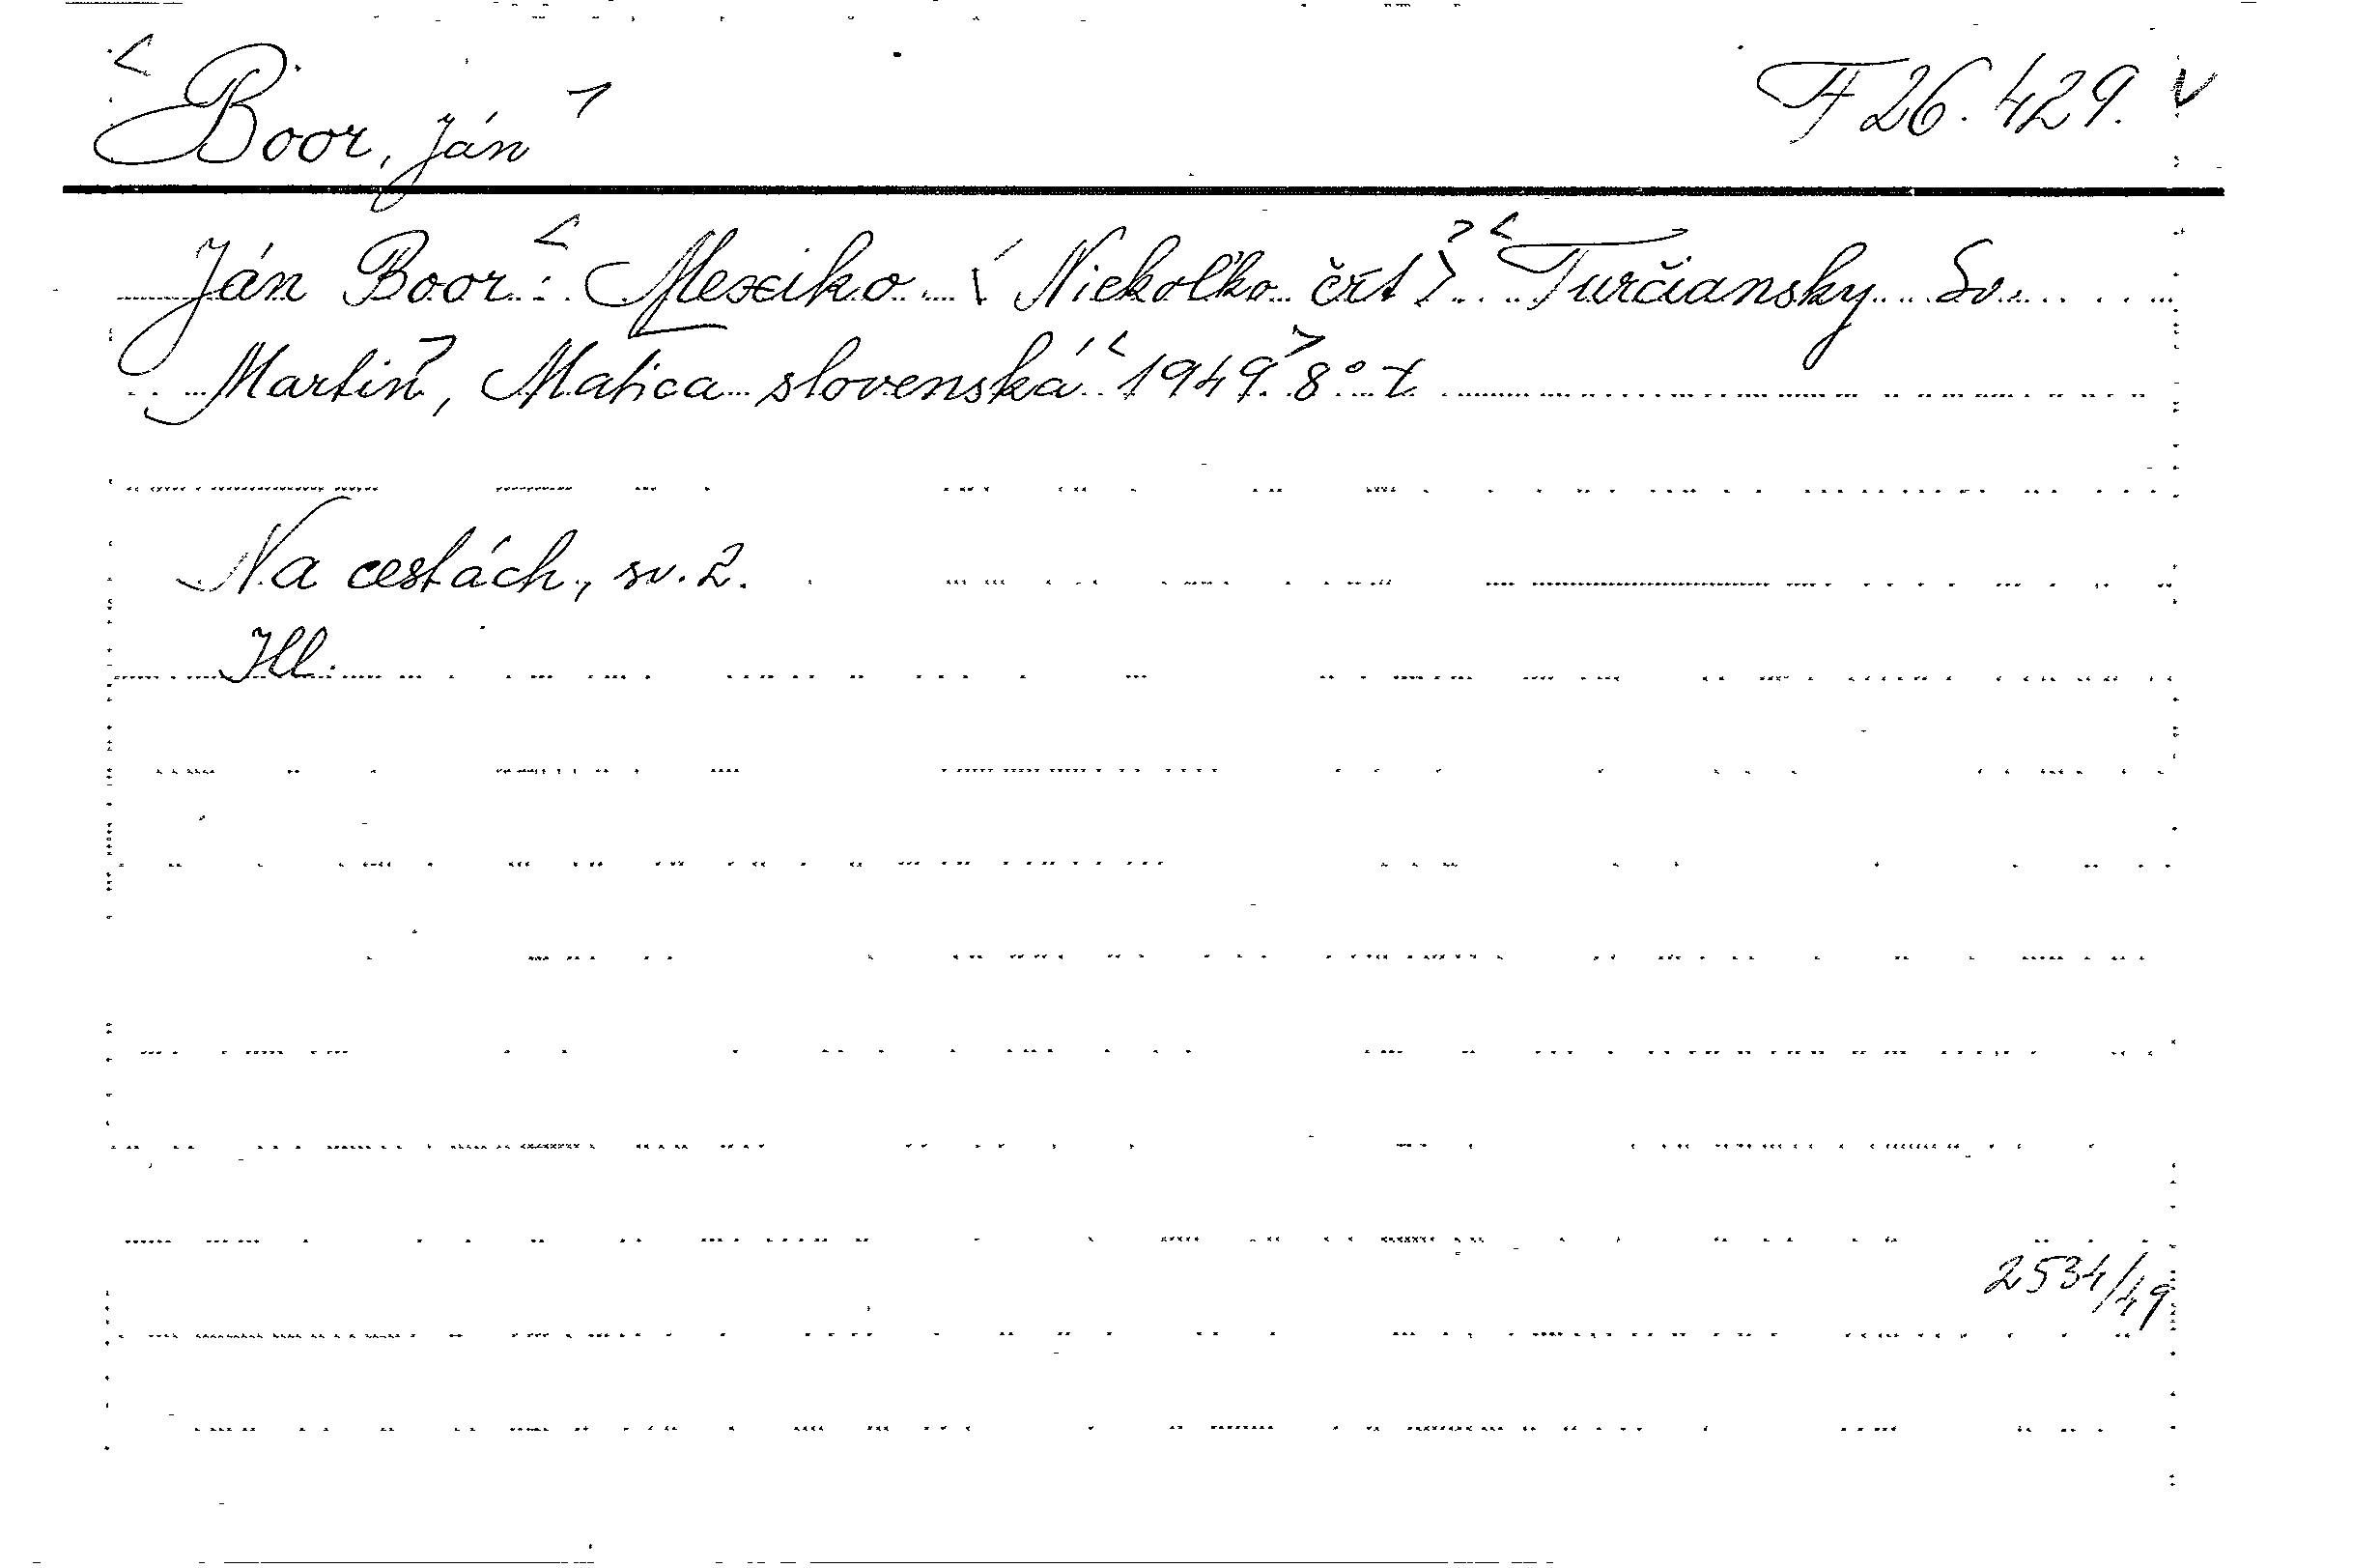 Boor, Ján
F 26.429.
Ján Boor: Mexiko (Niekoľko čŕt) Turčiansky Sv.
Martin, Matica slovenská 1949. 8° t.
Na cestách, sv. 2.
Il.
2534/49